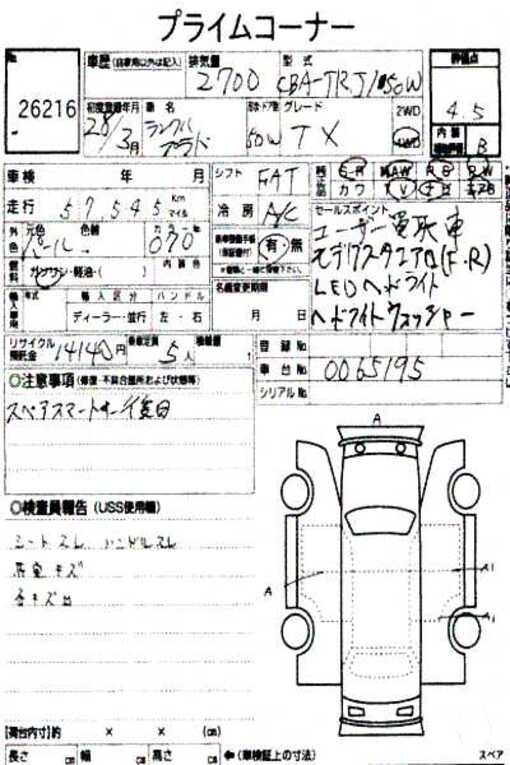 プライムコーナー
No
26216
車歴(自家用以外は記入)
排気量
2700
型式
CBA-TRJ150W
評価点
4.5
初度登録年月
28/3月
車名
ランクル
プラド
ドア形状
5DW
グレード
TX
2WD
4WD
内装
B
車検 年 月
シフト
FAT
S・R AAW P・S P・W
カワ T V ナビ エアB
走行
57,545 Km
マイル
冷房
A/C
セールスポイント
ユーザー買取車
モデリスタエアロ(F.R)
LEDヘッドライト
ヘッドライトウォッシャー
外色
元色
パール
色替
→
カラーNo
070
(保証書付)
有・無
燃料
ガソリン・軽油・( )
内装色
名義変更期限
月 日
輸入車用
年式
輸入区分
ハンドル
ディーラー・並行
左・右
リサイクル
預託金
14140円
乗車定員
5人
積載量
t
登録No
車台No
0065195
シリアルNo
◎注意事項(修復・不具合箇所および状態等)
スペアスマートキー後日
◎検査員報告(USS使用欄)
シートスレ ハンドルスレ
荷室キズ
各キズ凹
A
A
A1
A1
[荷台内寸]約 × × (cm)
長さ cm 幅 cm 高さ cm
←(車検証上の寸法)
スペア